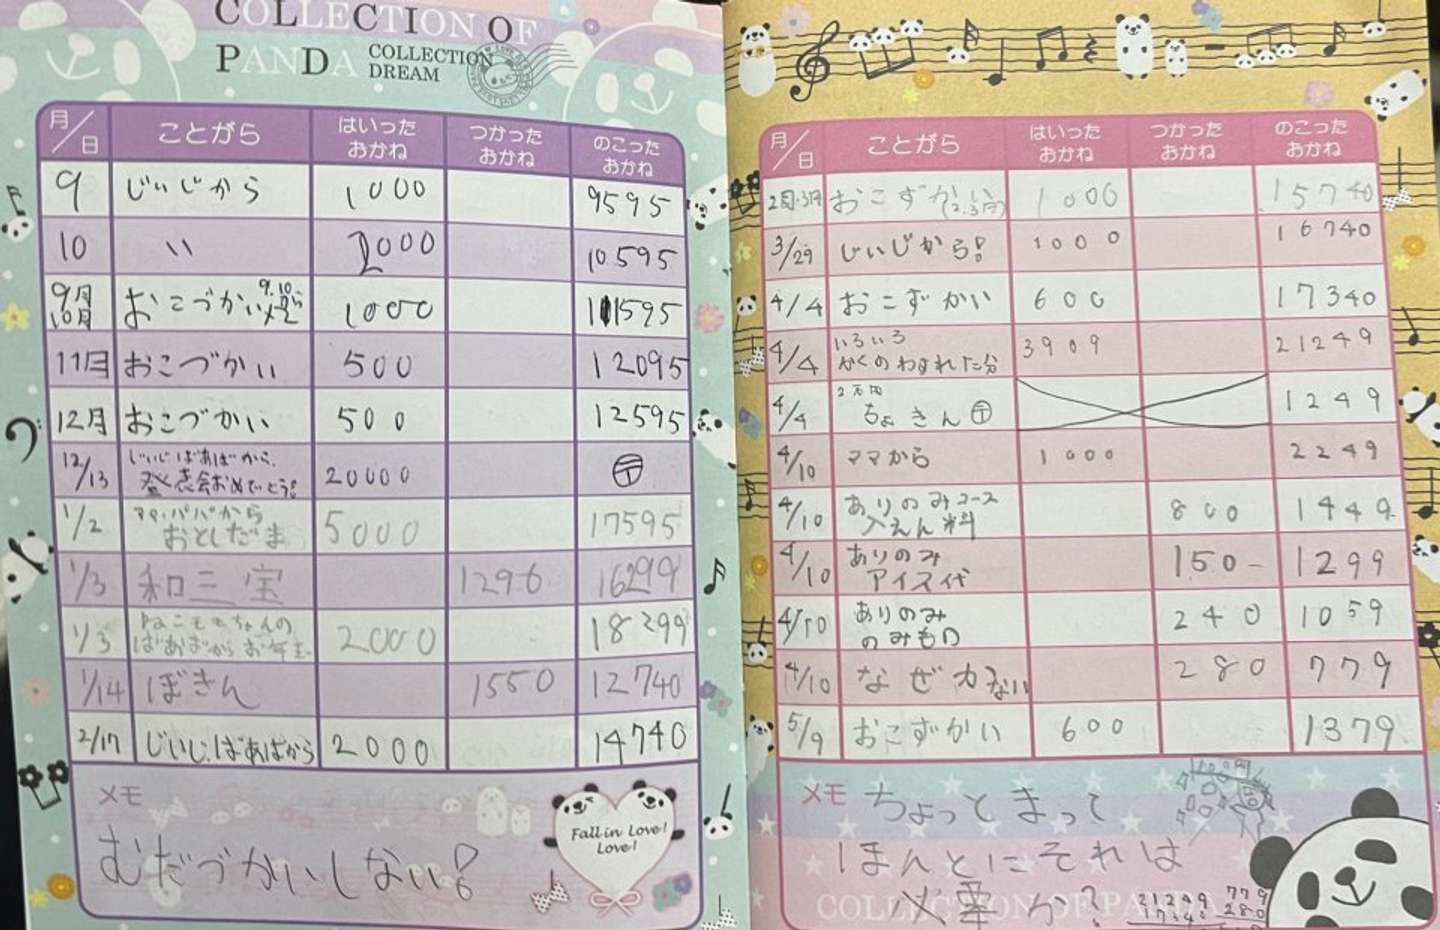 COLLECTION OF
PANDA COLLECTION DREAM
月/日 ことがら はいったおかね つかったおかね のこったおかね
9 じいじから 1000 9595
10 〃 2000 10595
9月10月 おこづかい 9.10 1000 11595
11月 おこづかい 500 12095
12月 おこづかい 500 12595
12/13 じいじばあばから、発表会おめでとう! 20000 〒
1/2 ママ、パパから おとしだま 5000 17595
1/3 和三宝 1296 16299
1/3 ねこももちゃんの ばあばから お年玉 2000 18299
1/14 ぼきん 1550 12740
2/17 じいじ、ばあばから 2000 14740
メモ
むだづかいしない!
Fall in Love!
Love!
月/日 ことがら はいったおかね つかったおかね のこったおかね
2月・3月 おこずかい(2.3月) 1000 15740
3/29 じいじから! 1000 16740
4/4 おこずかい 600 17340
4/4 いろいろ かくのわすれた分 3909 21249
4/4 2万円 ちょきん 〒 1249
4/10 ママから 1000 2249
4/10 ありのみコース 入えん料 800 1449
4/10 ありのみ アイス代 150- 1299
4/10 ありのみ のみもの 240 1059
4/10 なぜかない 280 779
5/9 おこずかい 600 1379
メモ
ちょっとまって
ほんとにそれは
必要か?
COLLECTION OF PANDA
21249
779
280